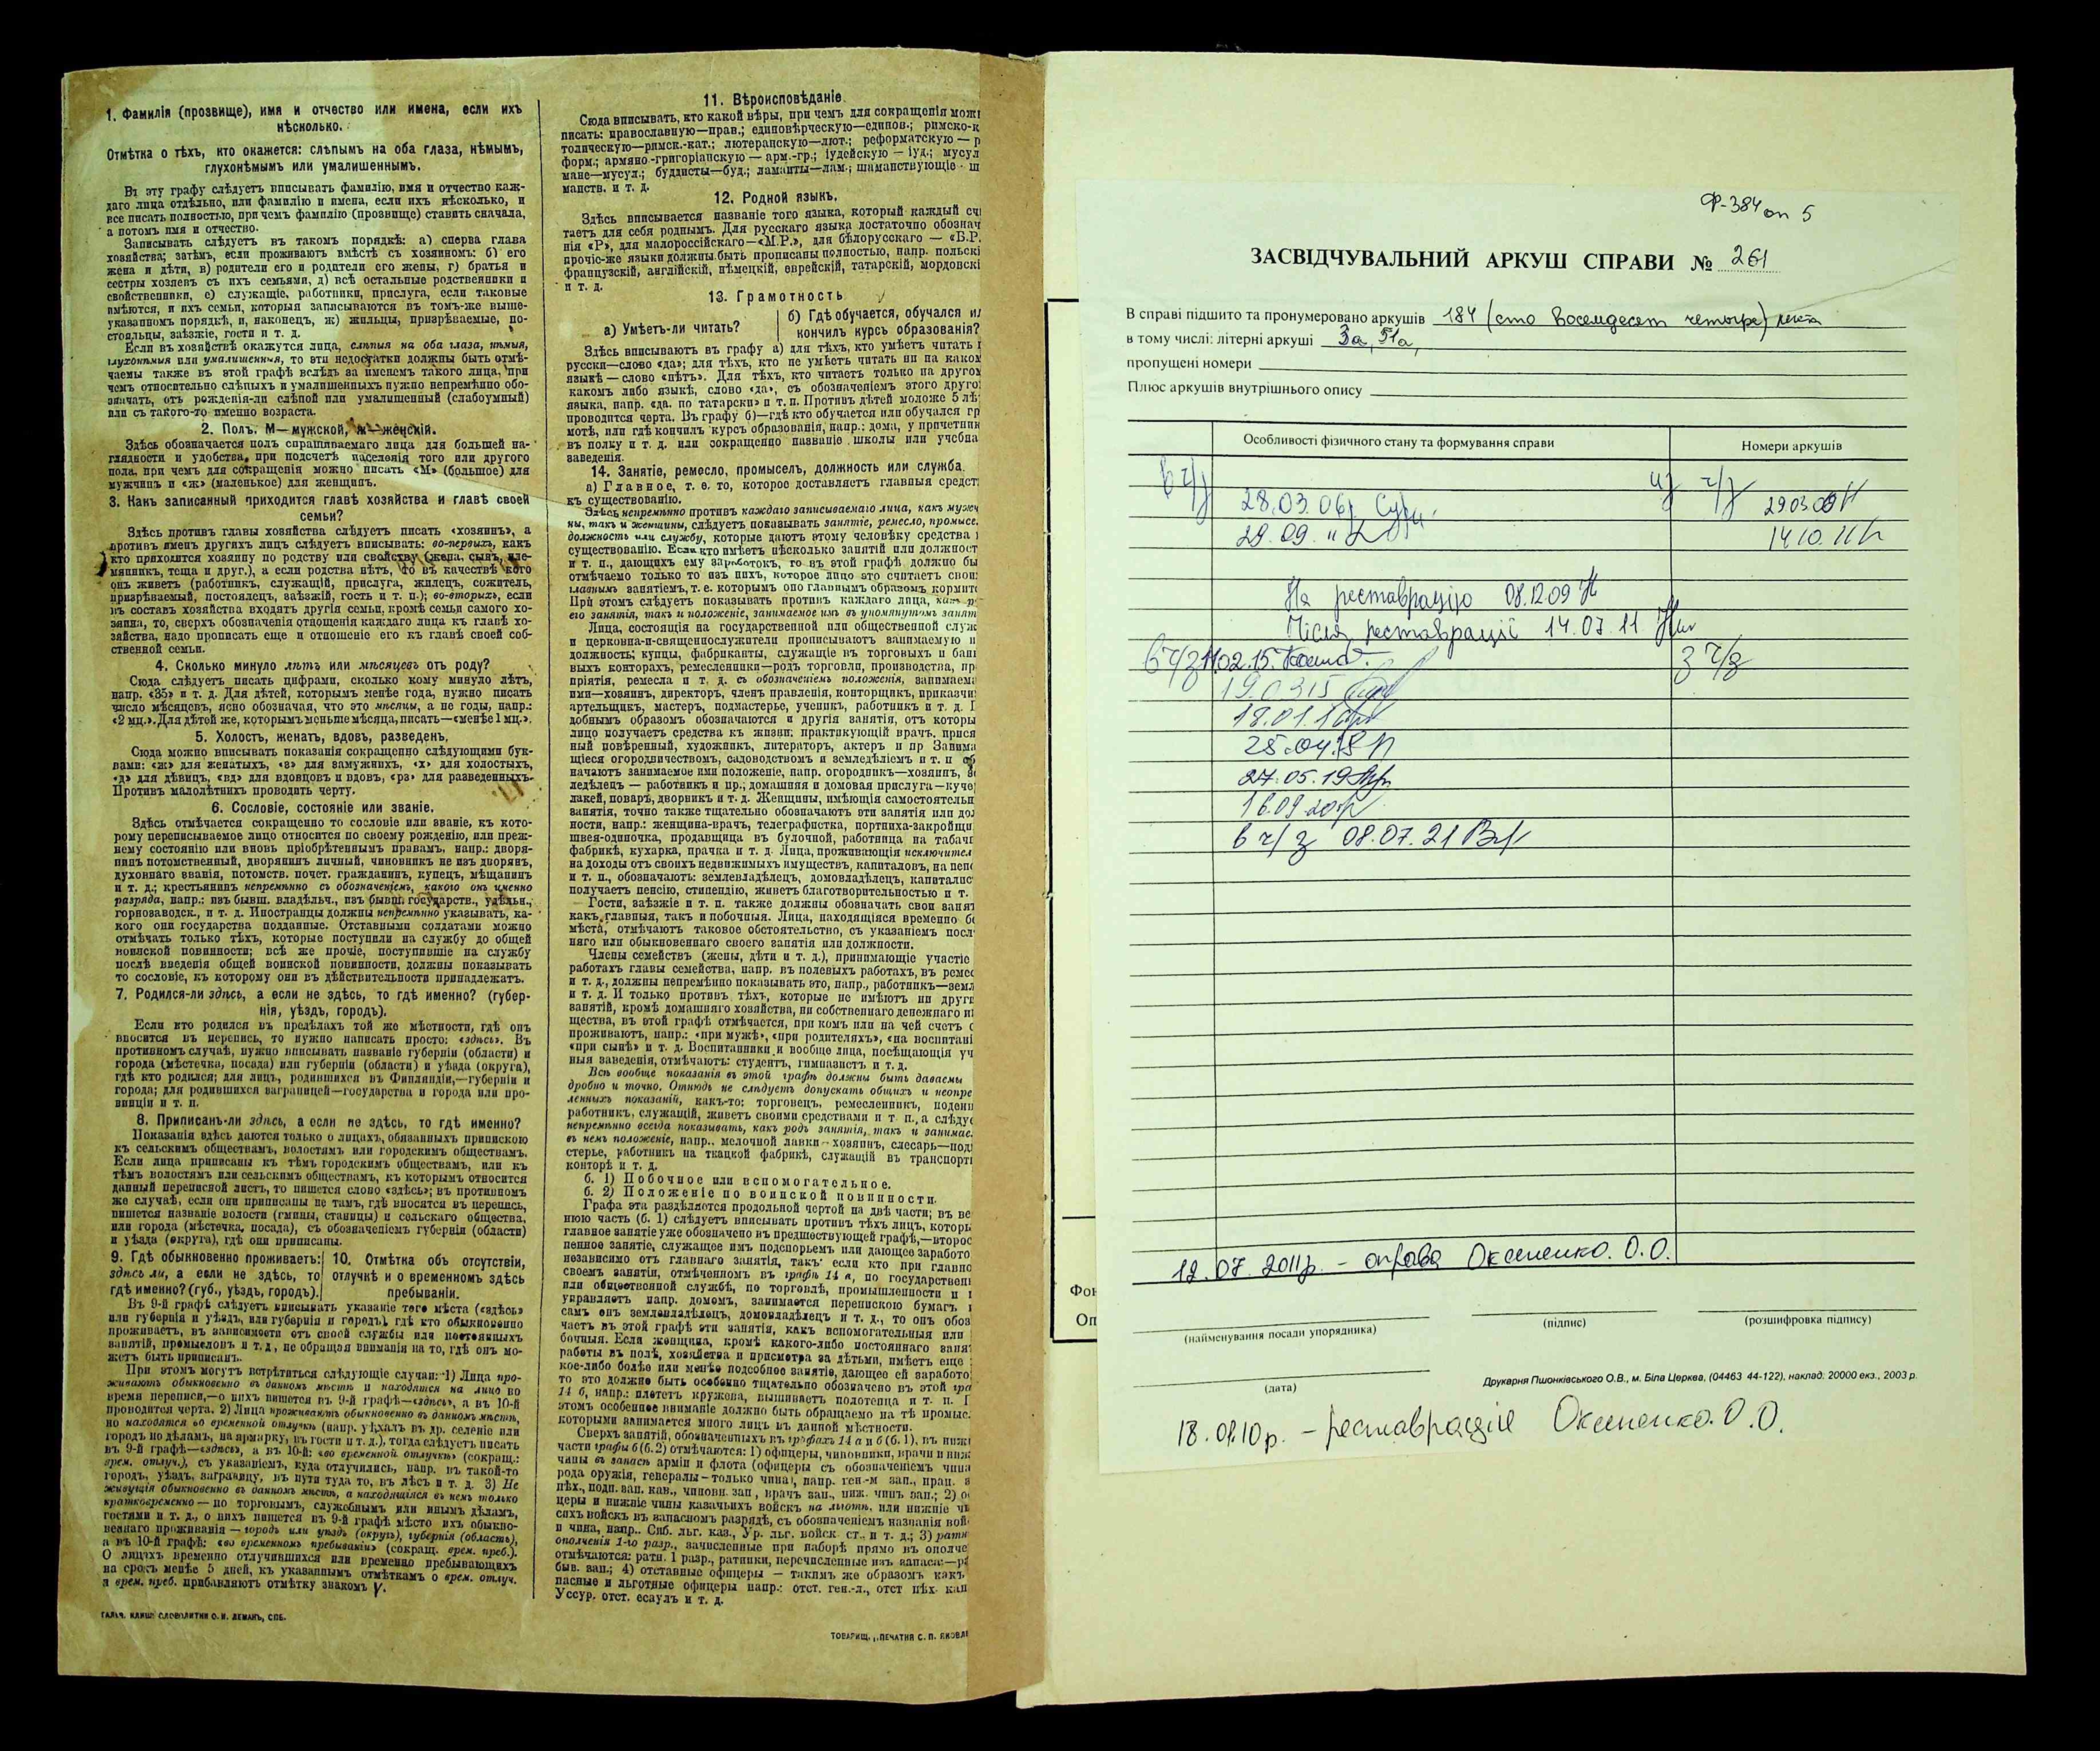 1. Фамилія (прозвище), имя и отчество или имена, если ихъ
нѣсколько.
Отмѣтка о тѣхъ, кто окажется: слѣпымъ на оба глаза, нѣмымъ,
глухонѣмымъ или умалишеннымъ.
Въ эту графу слѣдуетъ вписывать фамилію, имя и отчество каж-
даго лица отдѣльно, или фамилію и имена, если ихъ нѣсколько, и
все писать полностью, при чемъ фамилію (прозвище) ставить сначала,
а потомъ имя и отчество.
Записывать слѣдуетъ въ такомъ порядкѣ: а) сперва глава
хозяйства; затѣмъ, если проживаютъ вмѣстѣ съ хозяиномъ: б) его
жена и дѣти, в) родители его и родители его жены, г) братья и
сестры хозяевъ съ ихъ семьями, д) всѣ остальные родственники и
свойственники, е) служащіе, работники, прислуга, если таковые
имѣются, и ихъ семьи, которыя записываются въ томъ-же выше-
указанномъ порядкѣ, и, наконецъ, ж) жильцы, призрѣваемые, по-
стояльцы, заѣзжіе, гости и т. д.
Если въ хозяйствѣ окажутся лица, слѣпыя на оба глаза, нѣмыя,
глухонѣмыя или умалишенныя, то эти недостатки должны быть отмѣ-
чаемы также въ этой графѣ вслѣдъ за именемъ такого лица, при
чемъ относительно слѣпыхъ и умалишенныхъ нужно непремѣнно обо-
значать, отъ рожденія-ли слѣпой или умалишенный (слабоумный)
или съ такого-то именно возраста.
2. Полъ. М—мужской, ж—женскій.
Здѣсь обозначается полъ спрашиваемаго лица для большей на-
глядности и удобства, при подсчетѣ населенія того или другого
пола, при чемъ для сокращенія можно писать «М» (большое) для
мужчинъ и «ж» (маленькое) для женщинъ.
3. Какъ записанный приходится главѣ хозяйства и главѣ своей
семьи?
Здѣсь противъ главы хозяйства слѣдуетъ писать «хозяинъ», а
противъ именъ другихъ лицъ слѣдуетъ вписывать: во-первыхъ, какъ
кто приходится хозяину по родству или свойству (жена, сынъ, пле-
мянникъ, теща и друг.), а если родства нѣтъ, то въ качествѣ кого
онъ живетъ (работникъ, служащій, прислуга, жилецъ, сожитель,
призрѣваемый, постоялецъ, заѣзжій, гость и т. п.); во-вторыхъ, если
въ составъ хозяйства входятъ другія семьи, кромѣ семьи самого хо-
зяина, то, сверхъ обозначенія отношенія каждаго лица къ главѣ хо-
зяйства, надо прописать еще и отношеніе его къ главѣ своей соб-
ственной семьи.
4. Сколько минуло лѣтъ или мѣсяцевъ отъ роду?
Сюда слѣдуетъ писать цифрами, сколько кому минуло лѣтъ,
напр. «35» и т. д. Для дѣтей, которымъ менѣе года, нужно писать
число мѣсяцевъ, ясно обозначая, что это мѣсяцы, а не годы, напр.:
«2 мц.». Для дѣтей же, которымъ меньше мѣсяца, писать—«менѣе 1 мц.».
5. Холостъ, женатъ, вдовъ, разведенъ.
Сюда можно вписывать показанія сокращенно слѣдующими бук-
вами: «ж» для женатыхъ, «з» для замужнихъ, «х» для холостыхъ,
«д» для дѣвицъ, «вд» для вдовцовъ и вдовъ, «рз» для разведенныхъ.
Противъ малолѣтнихъ проводить черту.
6. Сословіе, состояніе или званіе.
Здѣсь отмѣчается сокращенно то сословіе или званіе, къ кото-
рому переписываемое лицо относится по своему рожденію, или преж-
нему состоянію или вновь пріобрѣтеннымъ правамъ, напр.: дворя-
нинъ потомственный, дворянинъ личный, чиновникъ не изъ дворянъ,
духовнаго званія, потомств. почет. гражданинъ, купецъ, мѣщанинъ
и т. д.; крестьянинъ непремѣнно съ обозначеніемъ, какого онъ именно
разряда, напр.: изъ бывш. владѣльч., изъ бывш. государств., удѣльн.,
горнозаводск., и т. д. Иностранцы должны непремѣнно указывать, ка-
кого они государства подданные. Отставными солдатами можно
отмѣчать только тѣхъ, которые поступили на службу до общей
воинской повинности; всѣ же прочіе, поступившіе на службу
послѣ введенія общей воинской повинности, должны показывать
то сословіе, къ которому они въ дѣйствительности принадлежатъ.
7. Родился-ли здѣсь, а если не здѣсь, то гдѣ именно? (губер-
нія, уѣздъ, городъ).
Если кто родился въ предѣлахъ той же мѣстности, гдѣ онъ
вносится въ перепись, то нужно написать просто: «здѣсь». Въ
противномъ случаѣ, нужно вписывать названіе губерніи (области) и
города (мѣстечка, посада) или губерніи (области) и уѣзда (округа),
гдѣ кто родился; для лицъ, родившихся въ Финляндіи,—губерніи и
города; для родившихся заграницей—государства и города или про-
винціи и т. п.
8. Приписанъ-ли здѣсь, а если не здѣсь, то гдѣ именно?
Показанія здѣсь даются только о лицахъ, обязанныхъ припискою
къ сельскимъ обществамъ, волостямъ или городскимъ обществамъ.
Если лица приписаны къ тѣмъ городскимъ обществамъ, или къ
тѣмъ волостямъ или сельскимъ обществамъ, къ которымъ относится
данный переписной листъ, то пишется слово «здѣсь»; въ противномъ
же случаѣ, если они приписаны не тамъ, гдѣ вносятся въ перепись,
пишется названіе волости (гмины, станицы) и сельскаго общества,
или города (мѣстечка, посада), съ обозначеніемъ губерніи (области)
и уѣзда (округа), гдѣ они приписаны.
9. Гдѣ обыкновенно проживаетъ:
здѣсь ли, а если не здѣсь, то
гдѣ именно? (губ., уѣздъ, городъ).
10. Отмѣтка объ отсутствіи,
отлучкѣ и о временномъ здѣсь
пребываніи.
Въ 9-й графѣ слѣдуетъ вписывать указаніе того мѣста («здѣсь»
или губернія и уѣздъ, или губернія и городъ), гдѣ кто обыкновенно
проживаетъ, въ зависимости отъ своей службы или постоянныхъ
занятій, промысловъ и т. д., не обращая вниманія на то, гдѣ онъ мо-
жетъ быть приписанъ.
При этомъ могутъ встрѣтиться слѣдующіе случаи: 1) Лица про-
живаютъ обыкновенно въ данномъ мѣстѣ и находятся на лицо во
время переписи,—о нихъ пишется въ 9-й графѣ—«здѣсь», а въ 10-й
проводится черта. 2) Лица проживаютъ обыкновенно въ данномъ мѣстѣ,
но находятся во временной отлучкѣ (напр. уѣхалъ въ др. селеніе или
городъ по дѣламъ, на ярмарку, въ гости и т. д.), тогда слѣдуетъ писать
въ 9-й графѣ—«здѣсь», а въ 10-й: «во временной отлучкѣ» (сокращ.:
врем. отлуч.), съ указаніемъ, куда отлучились, напр. въ такой-то
городъ, уѣздъ, заграницу, въ пути туда то, въ лѣсъ и т. д. 3) Не
живущія обыкновенно въ данномъ мѣстѣ, а находящіяся въ немъ только
кратковременно — по торговымъ, служебнымъ или инымъ дѣламъ,
гостями и т. д., о нихъ пишется въ 9-й графѣ мѣсто ихъ обыкно-
веннаго проживанія — городъ или уѣздъ (округъ), губернія (область),
а въ 10-й графѣ: «во временномъ пребываніи» (сокращ. врем. преб.).
О лицахъ временно отлучившихся или временно пребывающихъ
на срокъ менѣе 5 дней, къ указаннымъ отмѣткамъ о врем. отлуч.
и врем. преб. прибавляютъ отмѣтку знакомъ V.
ГАЛЬВ. КЛИШЕ СЛОВОЛИТНИ О. И. ЛЕМАНЪ, СПБ.
11. Вѣроисповѣданіе.
Сюда вписывать, кто какой вѣры, при чемъ для сокращенія мож
писать: православную—прав.; единовѣрческую—единов.; римско-к
толическую—римск.-кат.; лютеранскую—лют.; реформатскую — р
форм.; армяно-григоріанскую — арм.-гр.; іудейскую — іуд.; мусул
мане—мусул.; буддисты—буд.; ламаиты—лам.; шаманствующіе - ш
манств. и т. д.
12. Родной языкъ.
Здѣсь вписывается названіе того языка, который каждый сч
таетъ для себя роднымъ. Для русскаго языка достаточно обознач
нія «Р», для малороссійскаго—«М.Р.», для бѣлорусскаго — «Б.Р.
прочіе-же языки должны быть прописаны полностью, напр. польскі
французскій, англійскій, нѣмецкій, еврейскій, татарскій, мордовскі
и т. д.
13. Грамотность
а) Умѣетъ-ли читать?
б) Гдѣ обучается, обучался ил
кончилъ курсъ образованія?
Здѣсь вписываютъ въ графу а) для тѣхъ, кто умѣетъ читать п
русски—слово «да»; для тѣхъ, кто не умѣетъ читать ни на каком
языкѣ — слово «нѣтъ». Для тѣхъ, кто читаетъ только на другом
какомъ либо языкѣ, слово «да», съ обозначеніемъ этого друго
языка, напр. «да. по татарски» и т. п. Противъ дѣтей моложе 5 лѣ
проводится черта. Въ графу б)—гдѣ кто обучается или обучался гр
мотѣ, или гдѣ кончилъ курсъ образованія, напр.: дома, у причетник
въ полку и т. д. или сокращенно названіе школы или учебна
заведенія.
14. Занятіе, ремесло, промыселъ, должность или служба.
а) Главное, т. е. то, которое доставляетъ главныя средст
къ существованію.
Здѣсь непремѣнно противъ каждаго записываемаго лица, какъ мужч
ны, такъ и женщины, слѣдуетъ показывать занятіе, ремесло, промысе
должность или службу, которые даютъ этому человѣку средства
существованію. Если кто имѣетъ нѣсколько занятій или должност
и т. п., дающихъ ему заработокъ, то въ этой графѣ должно бы
отмѣчаемо только то изъ нихъ, которое лицо это считаетъ свои
главнымъ занятіемъ, т. е. которымъ оно главнымъ образомъ кормитс
При этомъ слѣдуетъ показывать противъ каждаго лица, какъ р
его занятія, такъ и положеніе, занимаемое имъ въ упомянутомъ занят
Лица, состоящія на государственной или общественной служ
и церковно-и-священнослужители прописываютъ занимаемую и
должность; купцы, фабриканты, служащіе въ торговыхъ и бан
выхъ конторахъ, ремесленники—родъ торговли, производства, пр
пріятія, ремесла и т. д. съ обозначеніемъ положенія, занимаема
ими—хозяинъ, директоръ, членъ правленія, конторщикъ, приказчи
артельщикъ, мастеръ, подмастерье, ученикъ, работникъ и т. д. П
добнымъ образомъ обозначаются и другія занятія, отъ которы
лицо получаетъ средства къ жизни: практикующій врачъ, прися
ный повѣренный, художникъ, литераторъ, актеръ и пр. Занима
щіеся огородничествомъ, садоводствомъ и земледѣліемъ и т. п. об
начаютъ занимаемое ими положеніе, напр. огородникъ—хозяинъ, з
ледѣлецъ — работникъ и пр.; домашняя и домовая прислуга—куче
лакей, поваръ, дворникъ и т. д. Женщины, имѣющія самостоятельн
занятія, точно также тщательно обозначаютъ эти занятія или дол
ности, напр.: женщина-врачъ, телеграфистка, портниха-закройщи
швея-одиночка, продавщица въ булочной, работница на табачн
фабрикѣ, кухарка, прачка и т. д. Лица, проживающія исключител
на доходы отъ своихъ недвижимыхъ имуществъ, капиталовъ, на пенс
и т. п., обозначаютъ: землевладѣлецъ, домовладѣлецъ, капиталис
получаетъ пенсію, стипендію, живетъ благотворительностью и т.
Гости, заѣзжіе и т. п. также должны обозначать свои занят
какъ главныя, такъ и побочныя. Лица, находящіяся временно бе
мѣста, отмѣчаютъ таковое обстоятельство, съ указаніемъ посл
няго или обыкновеннаго своего занятія или должности.
Члены семействъ (жены, дѣти и т. д.), принимающіе участіе
работахъ главы семейства, напр. въ полевыхъ работахъ, въ ремес
и т. д., должны непремѣнно показывать это, напр., работникъ—земл
и т. д. И только противъ тѣхъ, которые не имѣютъ ни други
занятій, кромѣ домашняго хозяйства, ни собственнаго денежнаго и
щества, въ этой графѣ отмѣчается, при комъ или на чей счетъ о
проживаютъ, напр.: «при мужѣ», «при родителяхъ», «на воспитані
«при сынѣ» и т. д. Воспитанники и вообще лица, посѣщающія уч
ныя заведенія, отмѣчаютъ: студентъ, гимназистъ и т. д.
Всѣ вообще показанія въ этой графѣ должны быть даваемы
дробно и точно. Отнюдь не слѣдуетъ допускать общихъ и неопре
ленныхъ показаній, какъ-то: торговецъ, ремесленникъ, поденщ
работникъ, служащій, живетъ своими средствами и т. п., а слѣдуе
непремѣнно всегда показывать, какъ родъ занятія, такъ и занимае
въ немъ положеніе, напр.. мелочной лавки—хозяинъ, слесарь—под
стерье, работникъ на ткацкой фабрикѣ, служащій въ транспорт
конторѣ и т. д.
б. 1) Побочное или вспомогательное.
б. 2) Положеніе по воинской повинности.
Графа эта раздѣляется продольной чертой на двѣ части; въ ве
нюю часть (б. 1) слѣдуетъ вписывать противъ тѣхъ лицъ, которы
главное занятіе уже обозначено въ предшествующей графѣ,—второс
пенное занятіе, служащее имъ подспорьемъ или дающее заработо
независимо отъ главнаго занятія, такъ: если кто при главно
своемъ занятіи, отмѣченномъ въ графѣ 14 а, по государственн
или общественной службѣ, по торговлѣ, промышленности и
управляетъ напр. домомъ, занимается перепискою бумагъ
самъ онъ землевладѣлецъ, домовладѣлецъ и т. д., то онъ обоз
чаетъ въ этой графѣ эти занятія, какъ вспомогательныя или
бочныя. Если женщина, кромѣ какого-либо постояннаго занят
работы въ полѣ, хозяйства и присмотра за дѣтьми, имѣетъ еще
кое-либо болѣе или менѣе подсобное занятіе, дающее ей заработо
то это должно быть особенно тщательно обозначено въ этой гра
14 б, напр.: плететъ кружева, вышиваетъ полотенца и т. п. П
этомъ особенное вниманіе должно быть обращаемо на тѣ промыс
которыми занимается много лицъ въ данной мѣстности.
Сверхъ занятій, обозначенныхъ въ графахъ 14 а и б (б. 1), въ нижн
части графы б (б. 2) отмѣчаются: 1) офицеры, чиновники, врачи и ниж
чины въ запасѣ арміи и флота (офицеры съ обозначеніемъ чина
рода оружія, генералы—только чина), напр. ген.-м. зап., прап. з
пѣх., подп. зап. кав., чиновн. зап., врачъ зап., ниж. чинъ зап.; 2) о
церы и нижніе чины казачьихъ войскъ на льготѣ, или нижніе чи
сихъ войскъ въ запасномъ разрядѣ, съ обозначеніемъ названія вой
и чина, напр.. Спб. льг. каз., Ур. льг. войск. ст., и т. д.; 3) ратн
ополченія 1-го разр., зачисленные при наборѣ прямо въ ополче
отмѣчаются: ратн. 1 разр., ратники, перечисленные изъ запаса:—р
быв. зап.; 4) отставные офицеры — такимъ же образомъ какъ
пасные и льготные офицеры напр.: отст. ген.-л., отст. пѣх. кап
Уссур. отст. есаулъ и т. д.
ТОВАРИЩ. „ПЕЧАТНЯ С. П. ЯКОВЛЕ
Ф-384 оп 5
ЗАСВІДЧУВАЛЬНИЙ АРКУШ СПРАВИ № 261
В справі підшито та пронумеровано аркушів 184 (сто восемдесет четыре) листа
в тому числі: літерні аркуші 3а, 51а,
пропущені номери
Плюс аркушів внутрішнього опису
Особливості фізичного стану та формування справи
Номери аркушів
в ч/з
из ч/з
28.03.06
29.03.06
29.09.11
14.10.11
На реставрацію 08.12.09
Після реставрації 14.07.11
в ч/з 11.02.15.
з ч/з
19.03.15
18.01.1
25.04.18
27.05.19
16.09.20
в ч/з 08.07.21
12.07.2011р. – оправа Оксененко. О.О.
(найменування посади упорядника)
(підпис)
(розшифровка підпису)
(дата)
Друкарня Пшонківського О.В., м. Біла Церква, (04463 44-122), наклад. 20000 екз., 2003 р.
18.01.10р. – реставрація Оксененко. О.О.
Фон
Оп